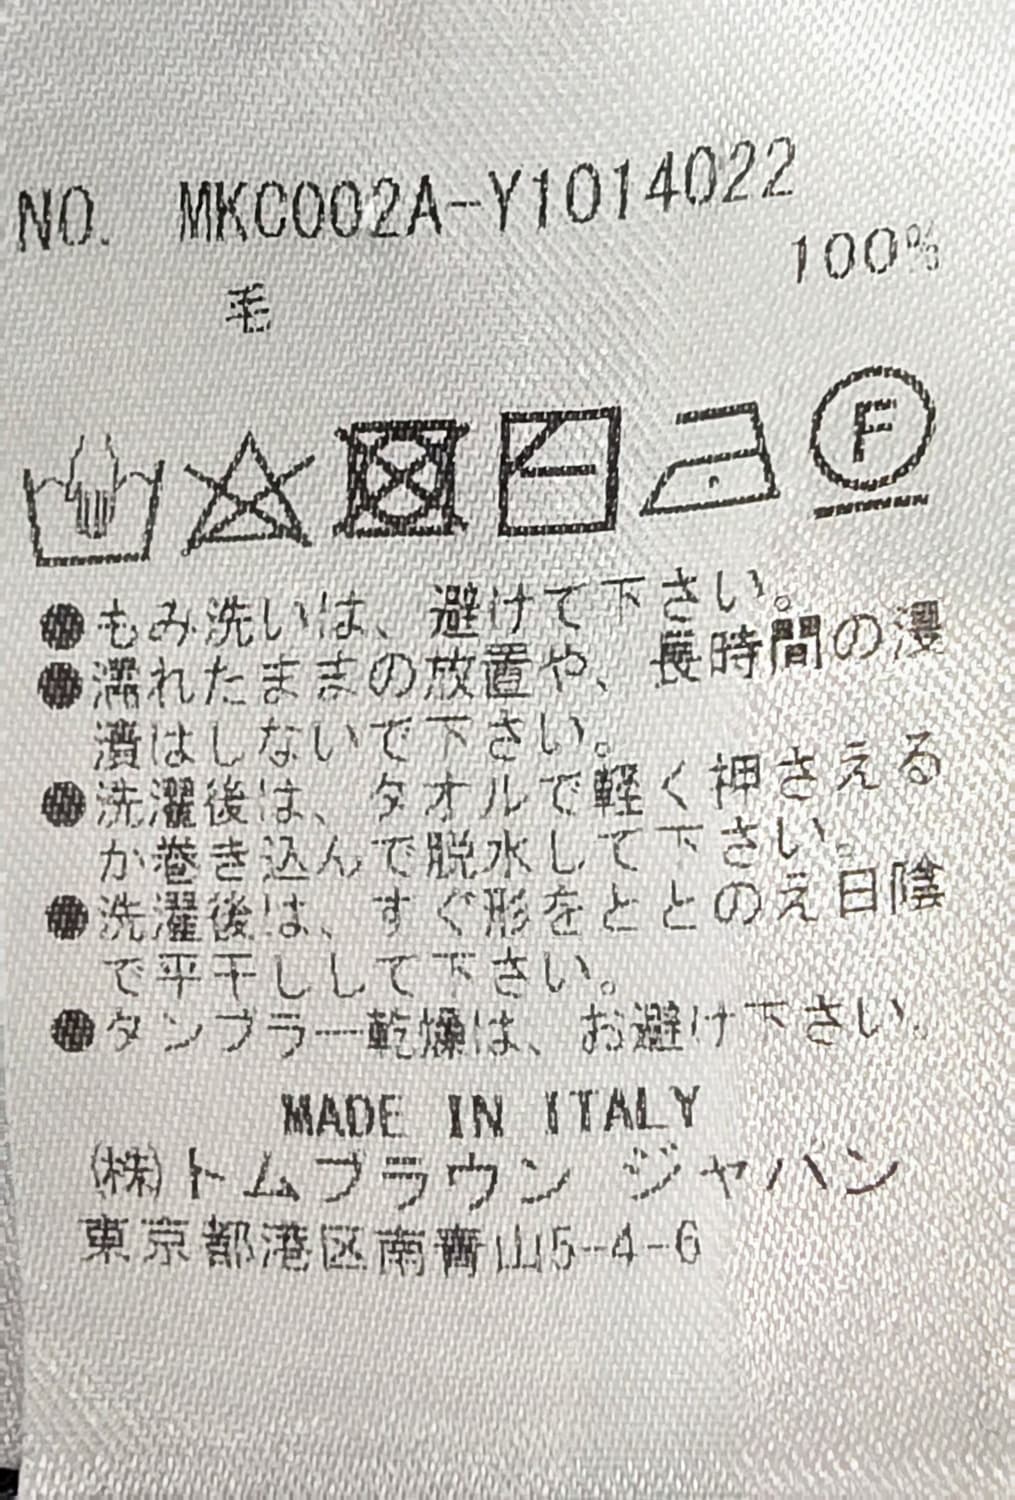 NO. MKC002A-Y1014022
毛 100%
F
●もみ洗いは、避けて下さい。
●濡れたままの放置や、長時間の浸
漬はしないで下さい。
●洗濯後は、タオルで軽く押さえる
か巻き込んで脱水して下さい。
●洗濯後は、すぐ形をととのえ日陰
で平干しして下さい。
●タンブラー乾燥は、お避け下さい。
MADE IN ITALY
(株)トムブラウン ジャパン
東京都港区南青山5-4-6